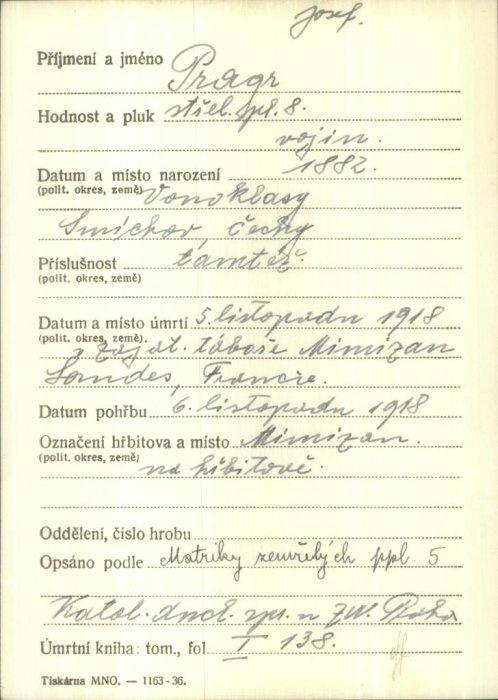 Josef.
Příjmení a jméno Pragr
Hodnost a pluk střel. pl. 8.
vojín.
Datum a místo narození 1882.
(polit. okres, země) Vonoklasy
Smíchov, Čechy
Příslušnost tamtéž.
(polit. okres, země)
Datum a místo úmrtí 5. listopadu 1918
(polit. okres, země). v zajat. táboře Mimizan
Landes, Francie.
Datum pohřbu 6. listopadu 1918
Označení hřbitova a místo Mimizan.
(polit. okres, země) na hřbitově.
Oddělení, číslo hrobu
Opsáno podle Matriky zemřelých ppl. 5
Katol. duch. spr. u zv. Praha
Úmrtní kniha: tom., fol I 138.
Tiskárna MNO. — 1163-36.